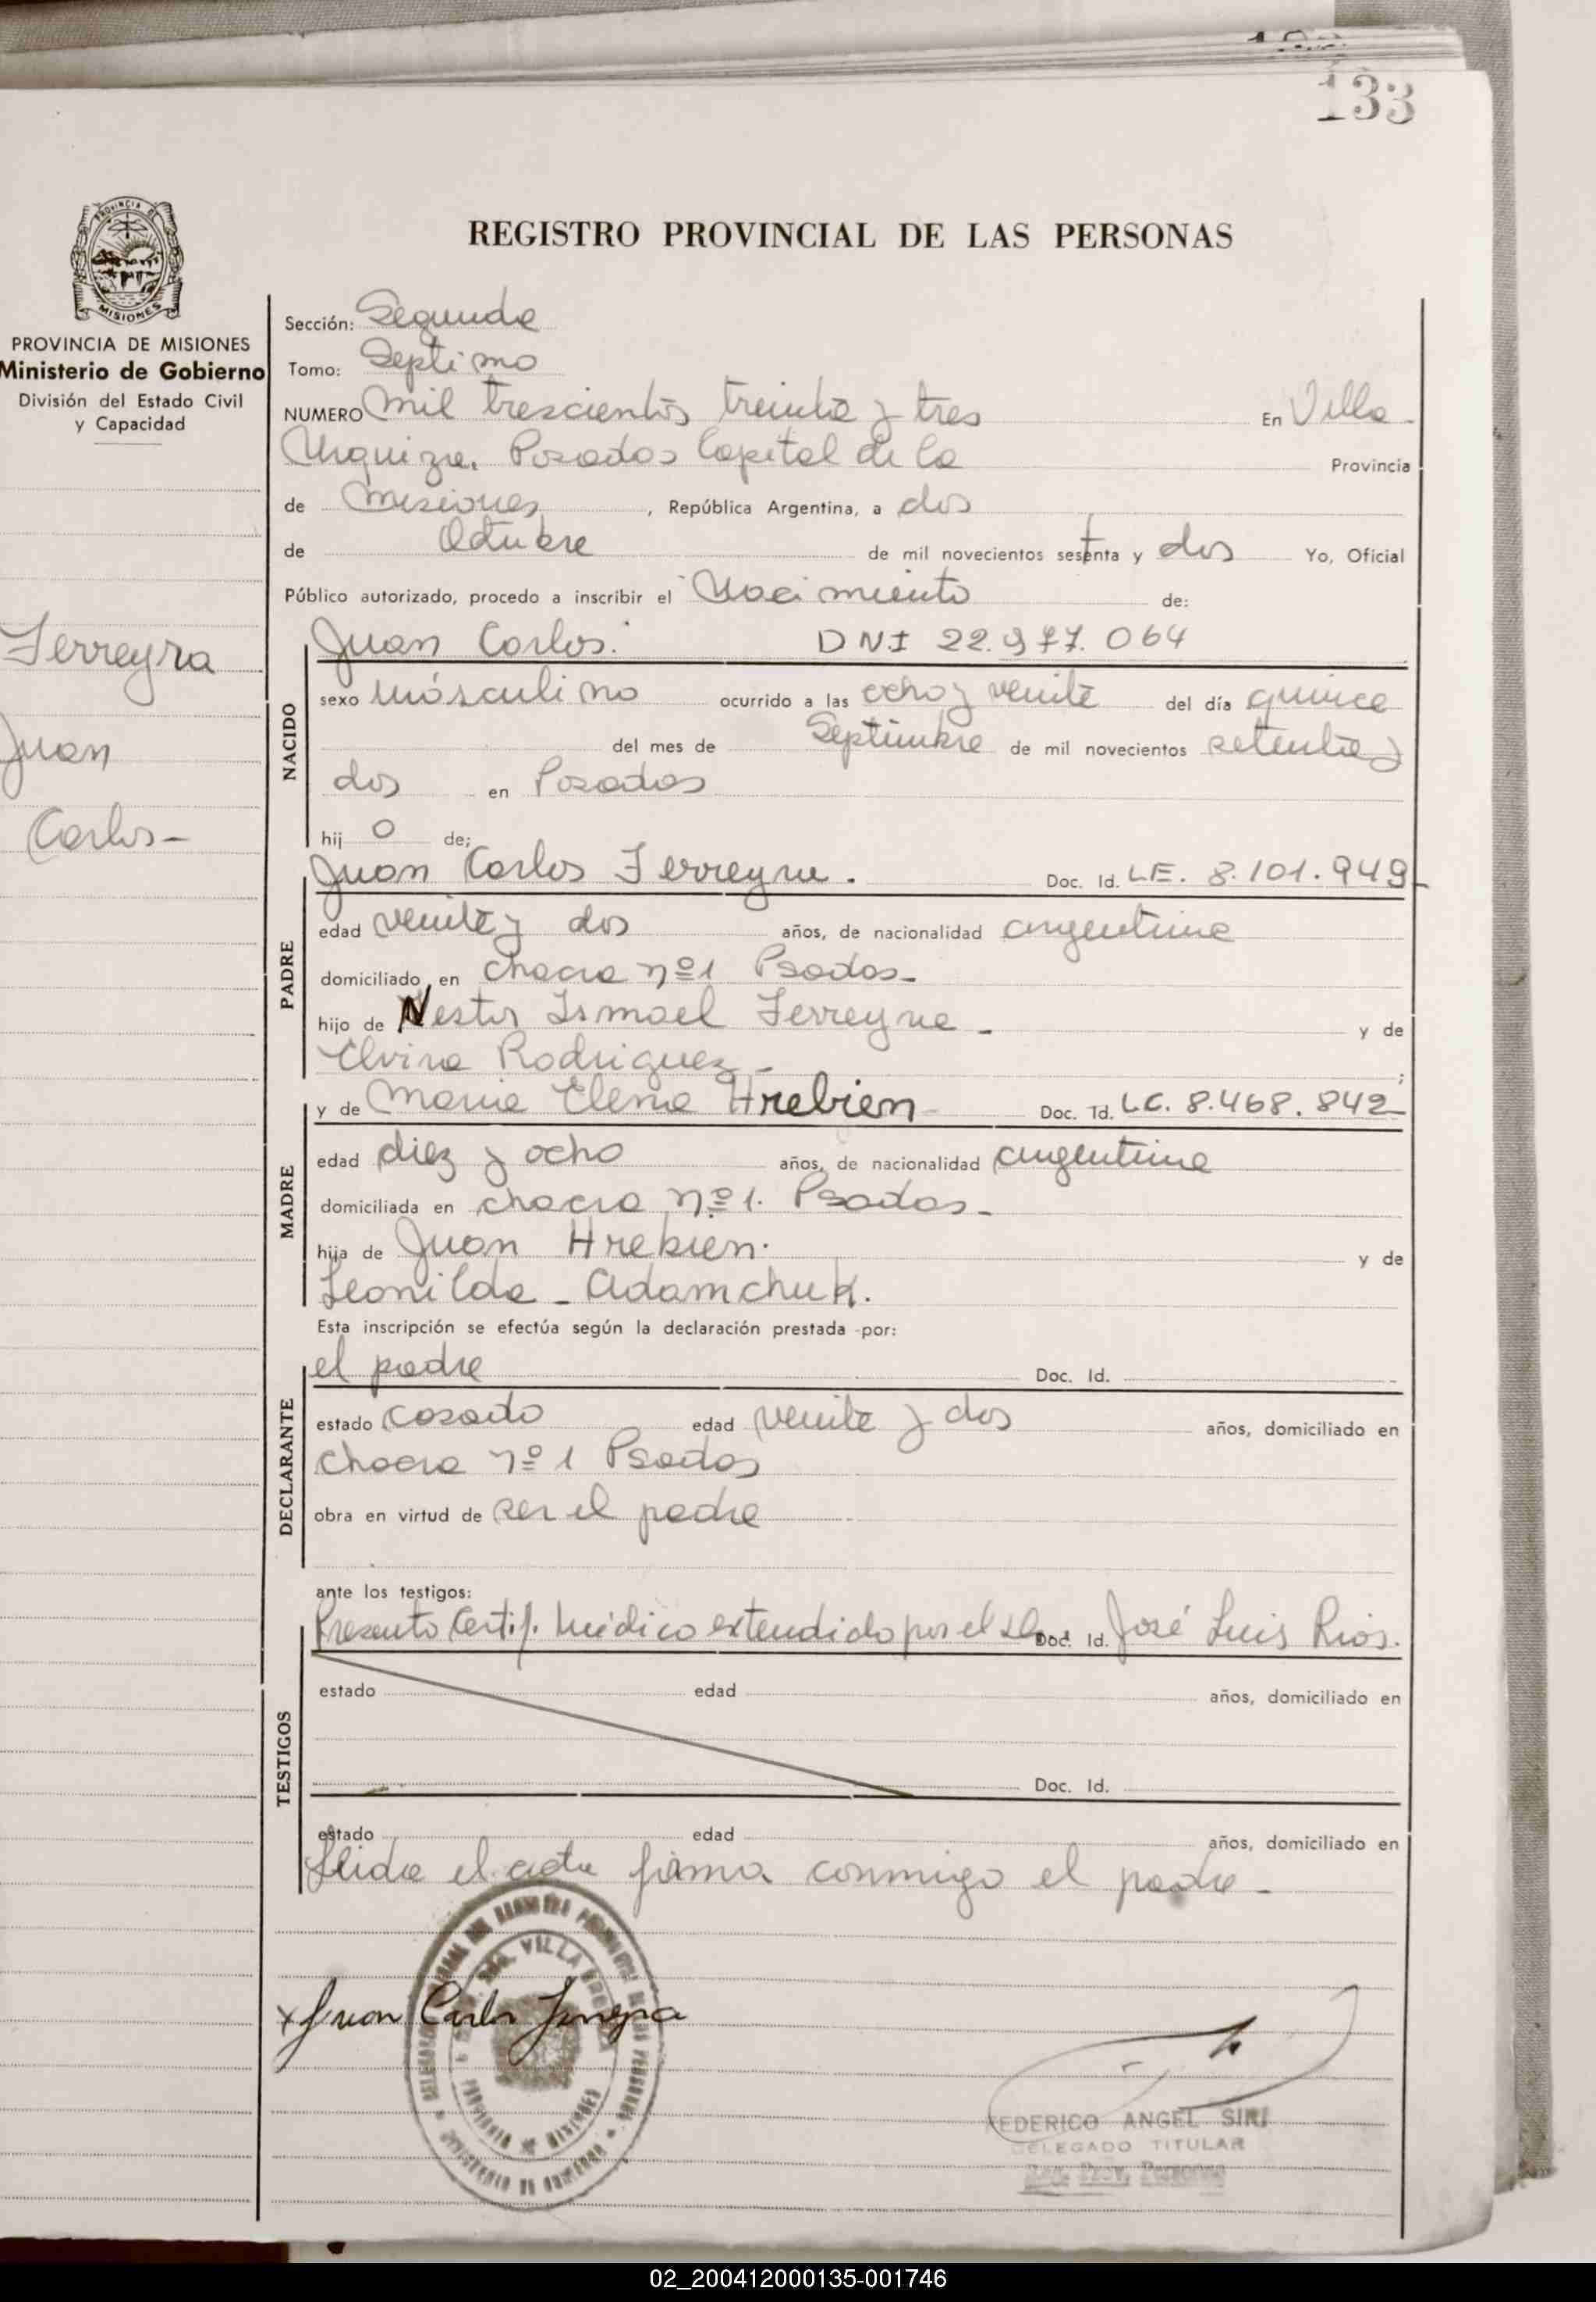 133
REGISTRO PROVINCIAL DE LAS PERSONAS
MISIONES
PROVINCIA DE MISIONES
Ministerio de Gobierno
División del Estado Civil
y Capacidad
Ferreyra
Juan
Carlos-
Sección: Segunda
Tomo: Septimo
NUMERO Mil trescientos treinta y tres En Villa
Urquiza. Posadas Capital de la Provincia
de Misiones, República Argentina, a dos
de Octubre de mil novecientos sesenta y dos Yo, Oficial
Público autorizado, procedo a inscribir el Nacimiento de:
Juan Carlos. DNI 22.977.064
NACIDO
sexo másculino ocurrido a las ocho y veinte del día quince
del mes de Septiembre de mil novecientos setenta y
dos en Posadas
hij o de;
Juan Carlos Ferreyra. Doc. Id. L.E. 8.101.949
PADRE
edad veinte y dos años, de nacionalidad argentina
domiciliado en chacra nº1 Psadas-
hijo de Nestor Ismael Ferreyra - y de
Elvira Rodriguez - ;
y de Maria Elena Hrebien Doc. Id. LC. 8.468.842
MADRE
edad diez y ocho años, de nacionalidad argentina
domiciliada en chacra nº1. Psadas-
hija de Juan Hrebien. y de
Leonilda - Adamchuk.
Esta inscripción se efectúa según la declaración prestada por:
el padre Doc. Id.
DECLARANTE
estado casado edad veinte y dos años, domiciliado en
chacra nº1 Psadas
obra en virtud de ser el padre
ante los testigos:
Presento Certif. Médico extendido por el Doc. Id. José Luis Rios.
TESTIGOS
estado edad años, domiciliado en
Doc. Id.
estado edad años, domiciliado en
Leida el acta firma conmigo el padre-
x Juan Carlos Ferreyra
FEDERICO ANGEL SIRI
DELEGADO TITULAR
Reg. Prov. Personas
02_200412000135-001746